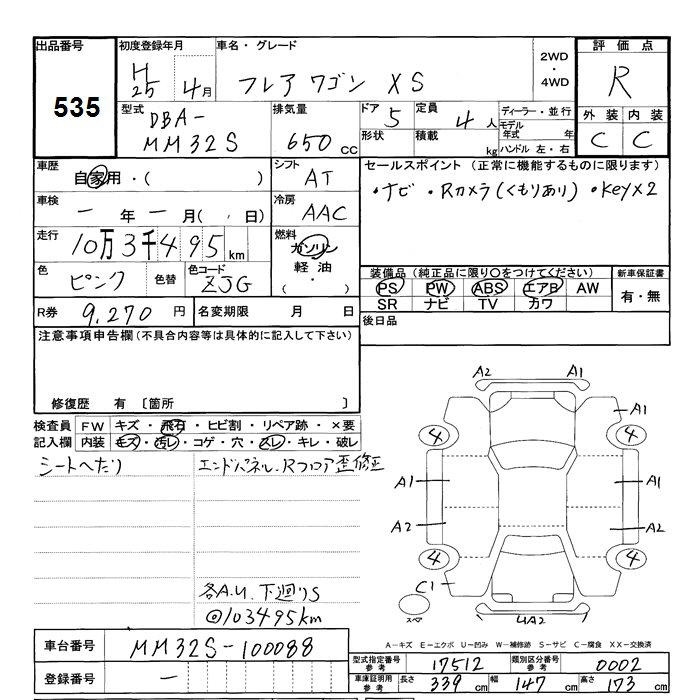 出品番号
535
初度登録年月
H25 4月
車名・グレード
フレアワゴン XS
2WD・4WD
評価点
R
型式
DBA-
MM32S
排気量
650 cc
ドア 5
形状
定員 4人
積載 kg
ディーラー・並行
モデル年式 年
ハンドル 左・右
外装 内装
C C
車歴
自家用・( )
シフト
AT
セールスポイント (正常に機能するものに限ります)
・ナビ ・Rカメラ(くもりあり) ・KEYX2
車検
ー年ー月( , 日)
冷房
AAC
走行
10万3千495km
燃料
ガソリン
軽油
( ・ )
色
ピンク
色替
色コード
ZJG
装備品 (純正品に限り○をつけてください)
新車保証書
PS PW ABS エアB AW
有・無
SR ナビ TV カワ
R券 9,270 円
名変期限 月 日
後日品
注意事項申告欄(不具合内容等は具体的に記入して下さい)
修復歴 有 〔箇所 〕
検査員 FW キズ・飛石・ヒビ割・リペア跡・×要
記入欄 内装 キズ・汚レ・コゲ・穴・スレ・キレ・破レ
シートへたり
エンドパネル.Rフロア歪修正
各A.U.下廻りS
@103495km
A2 A1
4 4 A1
A1 A1
A2 A2
4 4
C1
スペア
UA2
A-キズ E-エクボ U-凹み W-補修跡 S-サビ C-腐食 XX-交換済
車台番号 MM32S-100088
登録番号 ー
型式指定番号 参考 17512
類別区分番号 参考 0002
車庫証明用 参考 長さ 339 cm 幅 147 cm 高さ 173 cm